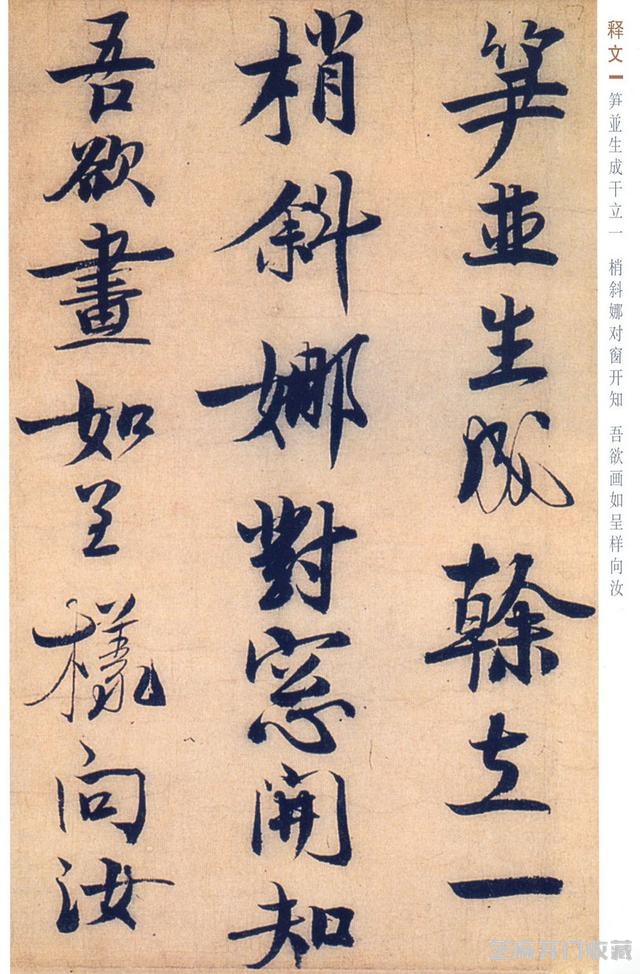 释文
笋並生成干立一 梢斜娜对窗开知 吾欲画如呈样向汝
笋並生成榦立一
梢斜娜對窓開知
吾欲畫如呈樣向汝
芝麻开门收藏